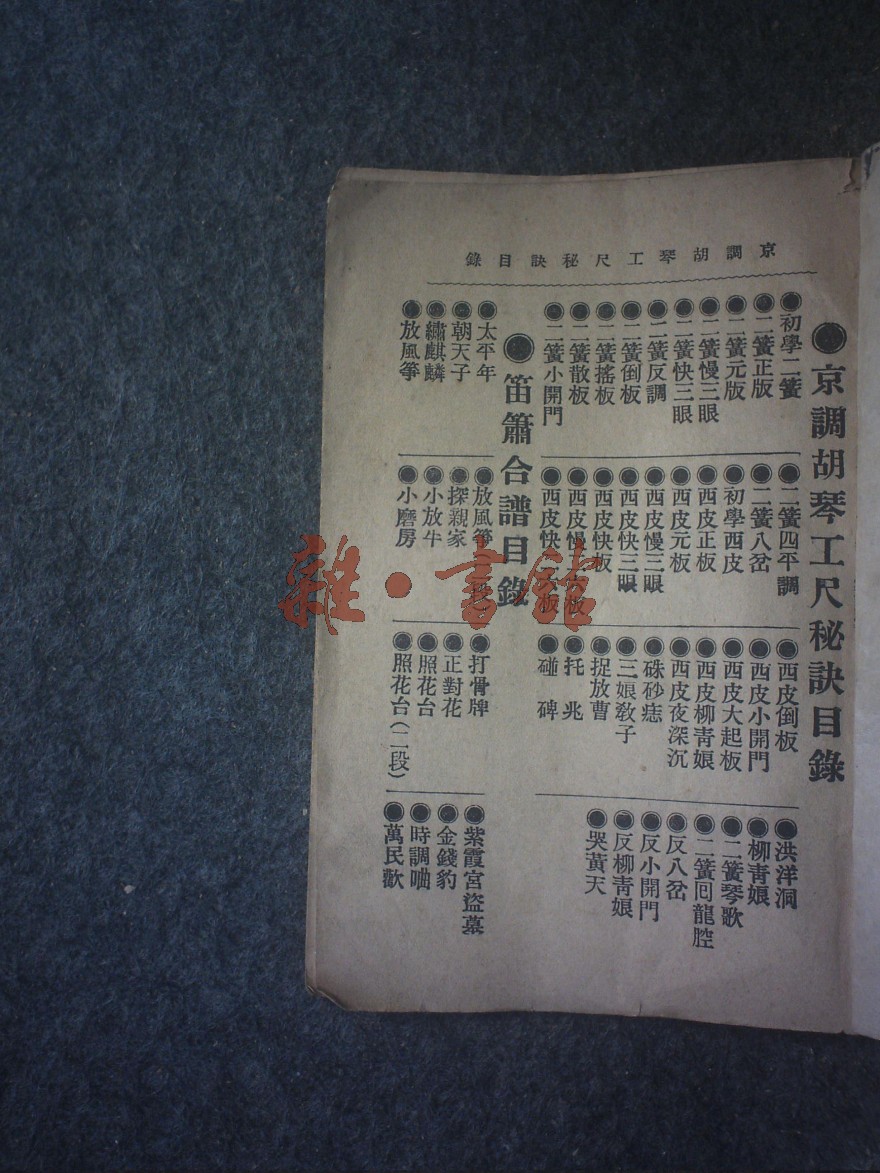 京調胡琴工尺秘訣目錄
京調胡琴工尺秘訣目錄
初學二簧
二簧正版
二簧元版
二簧慢三眼
二簧快三眼
二簧反調
二簧倒板
二簧搖板
二簧散板
二簧小開門
二簧四平調
二簧八岔
初學西皮
西皮正板
西皮元板
西皮慢三眼
西皮快三眼
西皮快板
西皮慢 板
西皮快 板
西皮倒板
西皮小開門
西皮大起板
西皮柳青娘
西皮夜深沉
硃砂痣
三娘教子
捉放曹
托兆
碰碑
洪洋洞
柳青娘
二簧琴歌
二簧囘龍腔
反八岔
反小開門
反柳青娘
哭黃天
笛簫合譜目錄
太平年
朝天子
繡麒麟
放風箏
放風箏
探親家
小放牛
小磨房
打骨牌
正對花
照花台
照花台(二段)
紫霞宮盜墓
金錢豹
時調
萬民歡
雜·書館